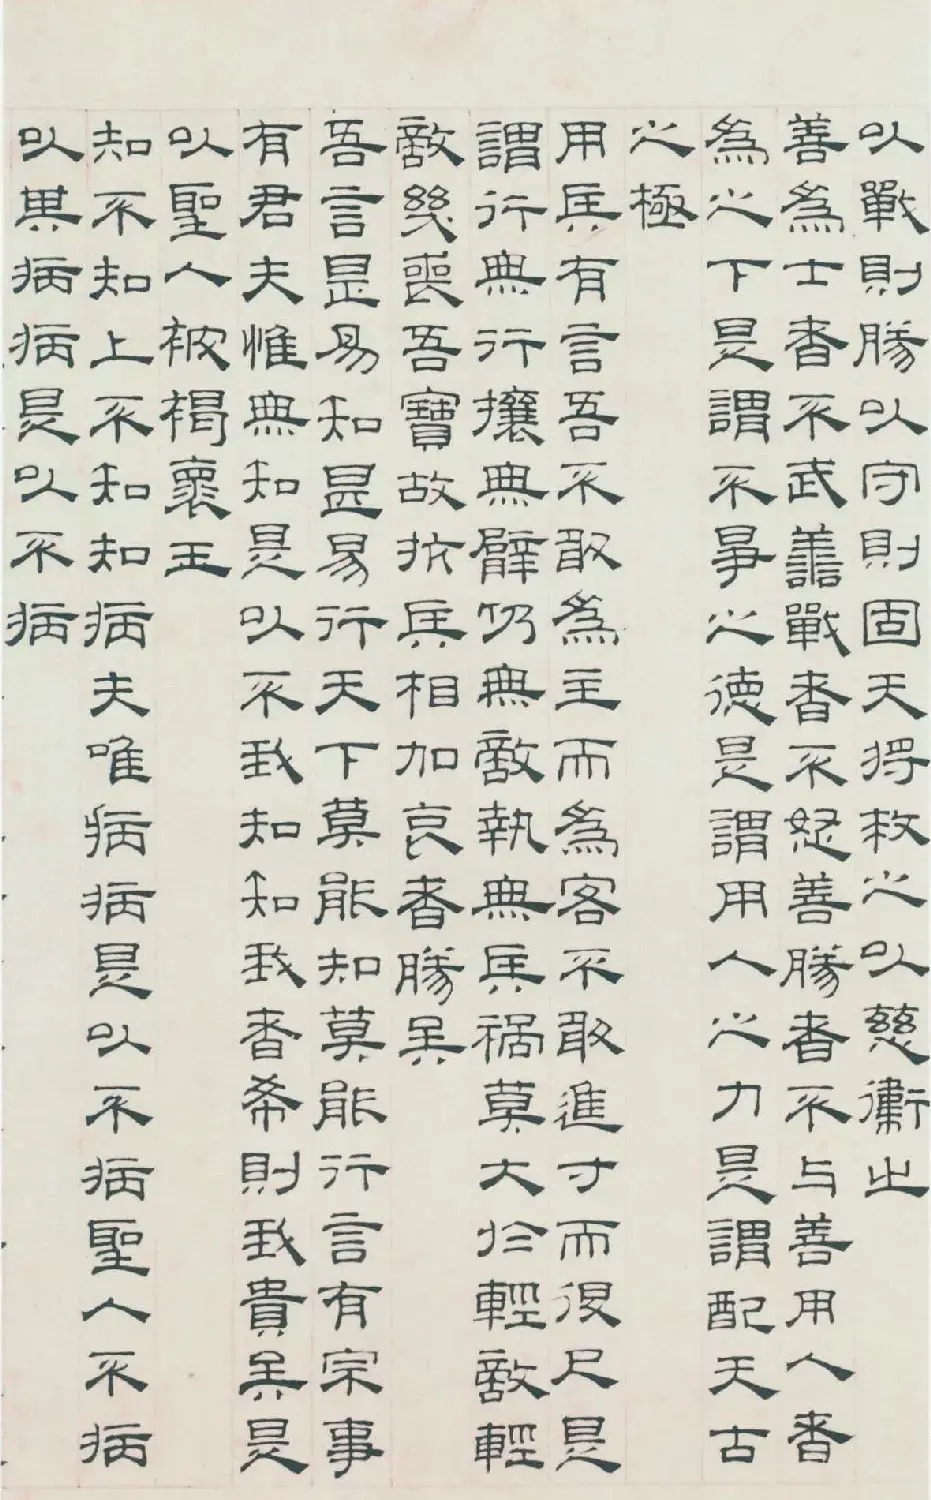 以戰則勝以守則固天將救之以慈衛之
善為士者不武善戰者不怒善勝者不与善用人者
為之下是謂不爭之德是謂用人之力是謂配天古
之極
用兵有言吾不敢為主而為客不敢進寸而退尺是
謂行無行攘無臂仍無敵執無兵禍莫大於輕敵輕
敵幾喪吾寶故抗兵相加哀者勝矣
吾言甚易知甚易行天下莫能知莫能行言有宗事
有君夫惟無知是以不我知知我者希則我貴矣是
以聖人被褐褱玉
知不知上不知知病夫唯病病是以不病聖人不病
以其病病是以不病